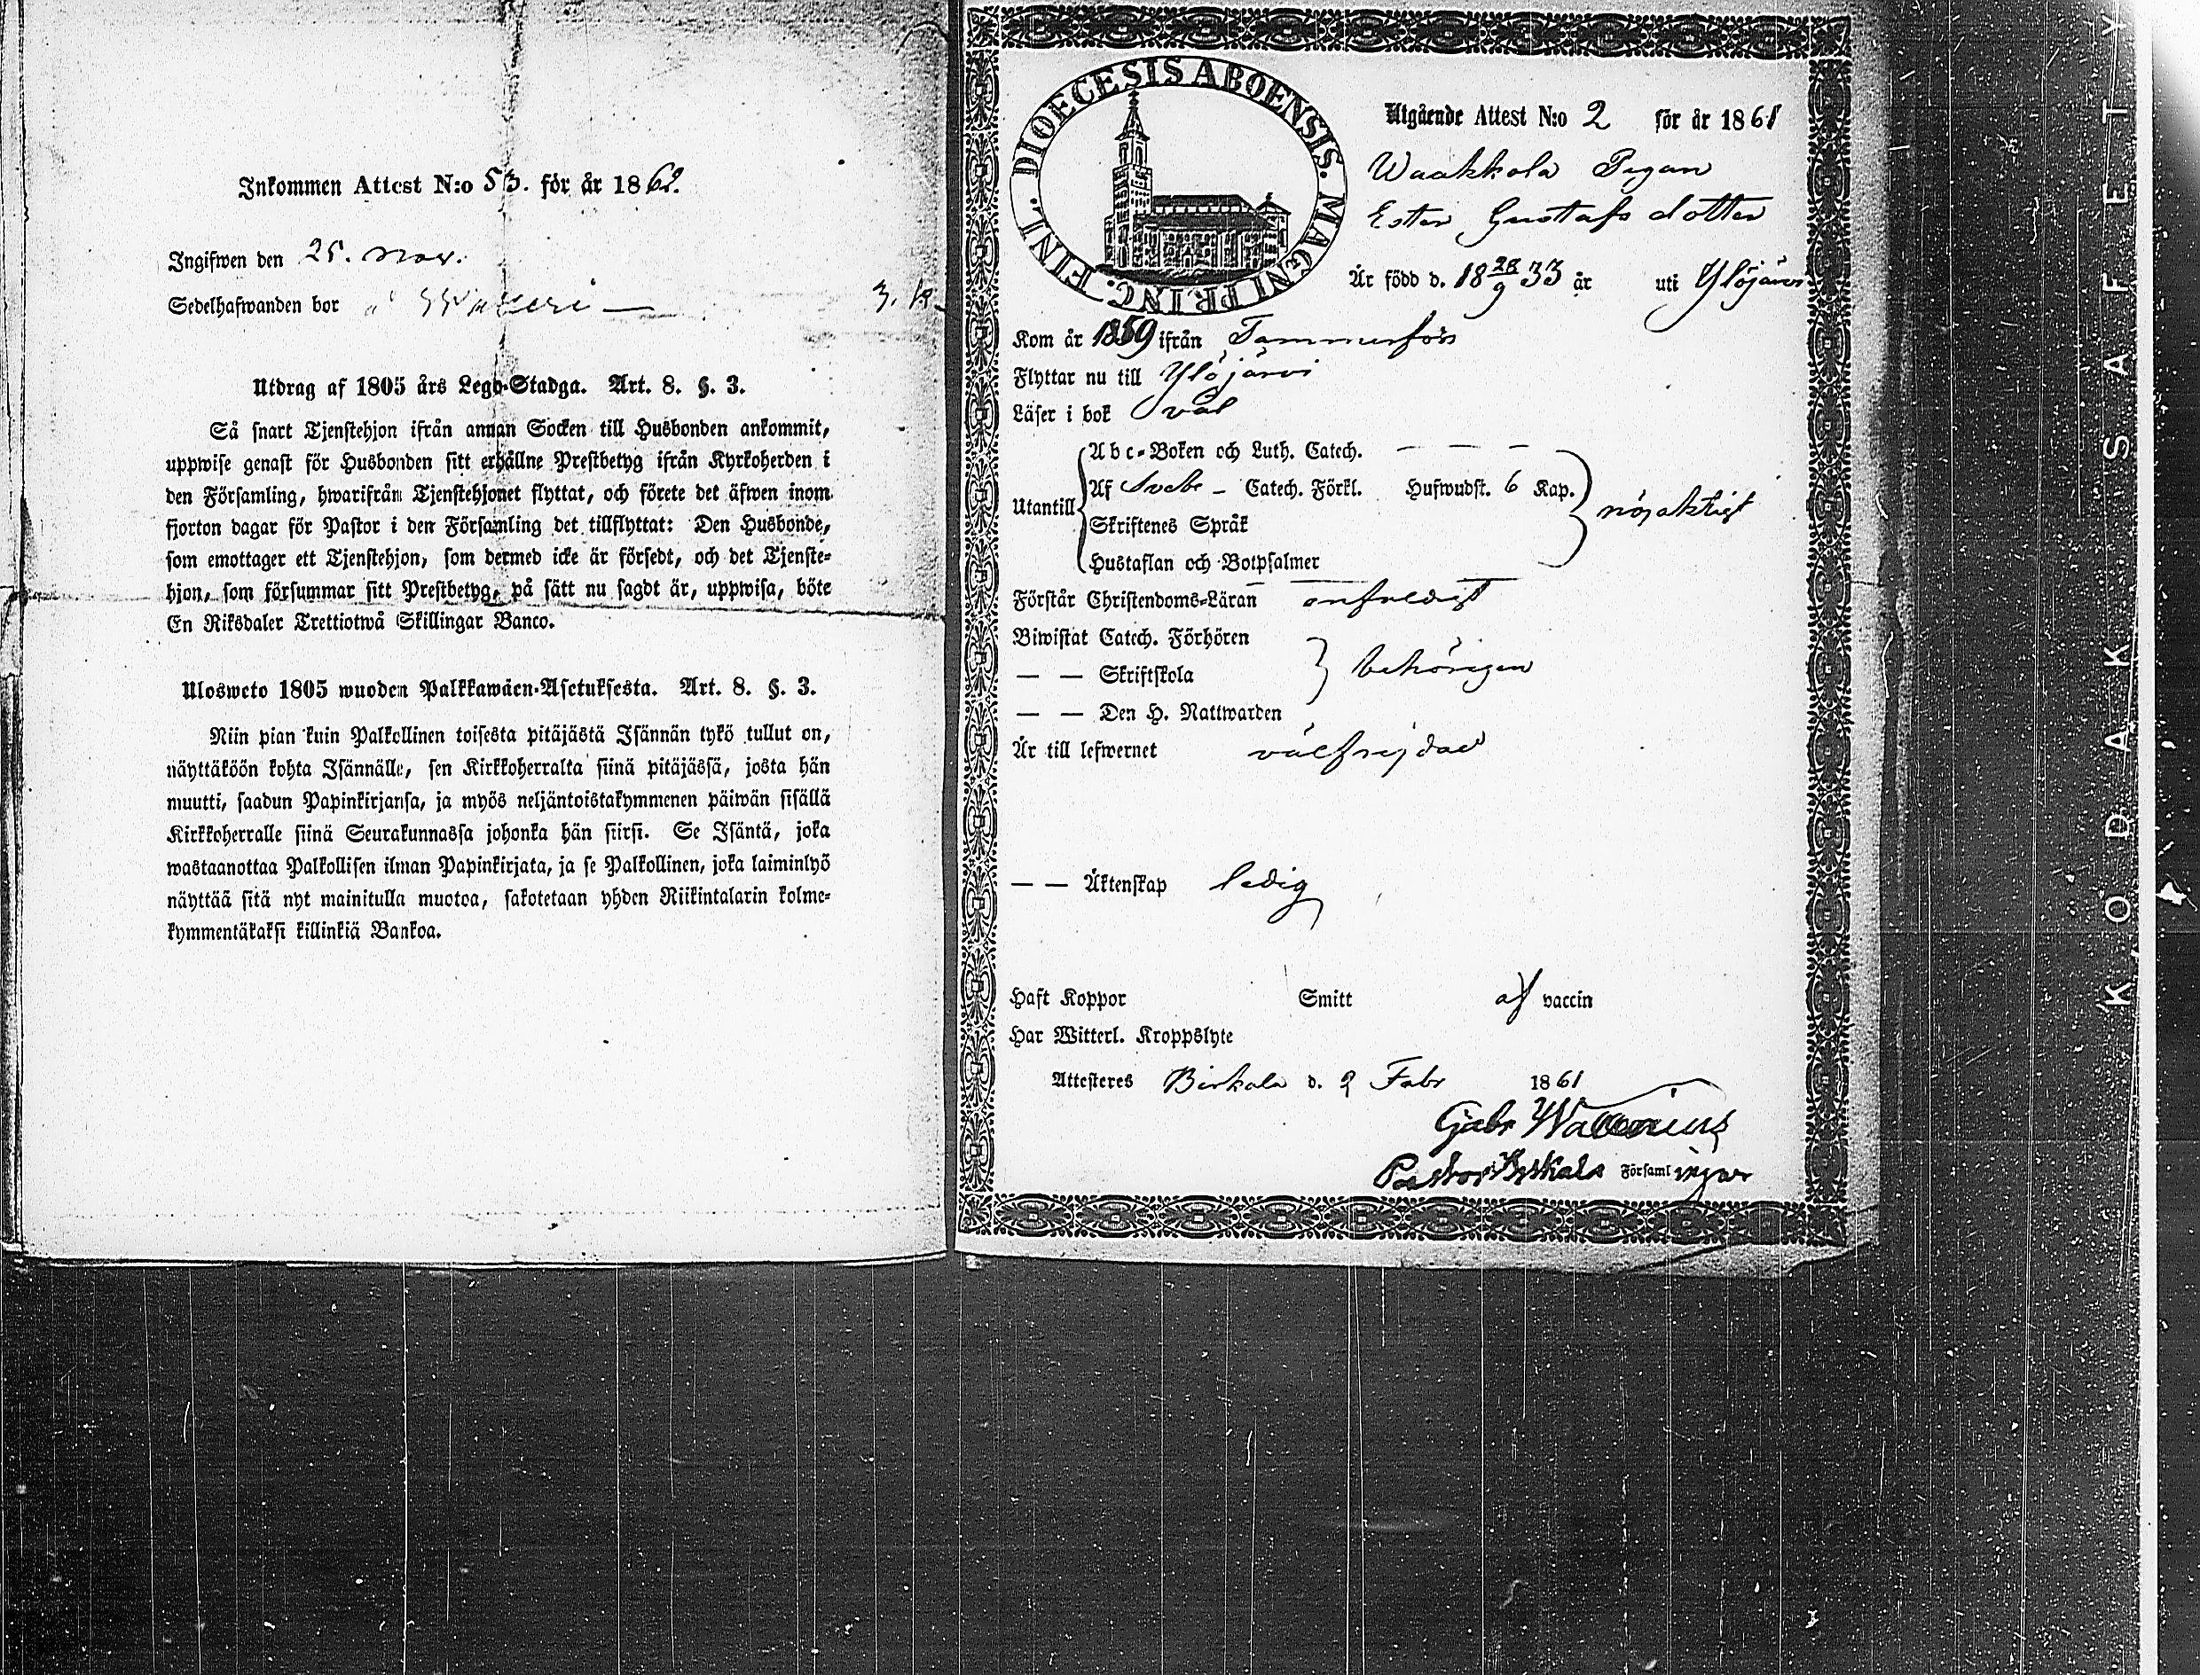 Inkommen Attest N:o 53. för år 1862.
Ingifwen den 25. Nov.
Sedelhafwanden bor
Utdrag af 1805 års Lego-Stadga. Art. 8. §. 3.
Så snart Tjenstehjon ifrån annan Socken till Husbonden ankommit,
uppwise genast för Husbonden sitt erhållne Prestbetyg ifrån Kyrkoherden i
den Församling, hwarifrån Tjenstehjonet flyttat, och förete det äfwen inom
fjorton dagar för Pastor i den Församling det tillflyttat: Den Husbonde,
som emottager ett Tjenstehjon, som dermed icke är försedt, och det Tjenste-
hjon, som försummar sitt Prestbetyg, på sätt nu sagdt är, uppwisa, böte
En Riksdaler Trettiotwå Skillingar Banco.
Ulosweto 1805 wuoden Palkkawäen-Asetuksesta. Art. 8. §. 3.
Niin pian kuin Palkollinen toisesta pitäjästä Isännän tykö tullut on,
näyttäköön kohta Isännälle, sen Kirkkoherralta siinä pitäjässä, josta hän
muutti, saadun Papinkirjansa, ja myös neljäntoistakymmenen päiwän sisällä
Kirkkoherralle siinä Seurakunnassa johonka hän siirsi. Se Isäntä, joka
wastaanottaa Palkollisen ilman Papinkirjata, ja se Palkollinen, joka laiminlyö
näyttää sitä nyt mainitulla muotoa, sakotetaan yhden Riikintalarin kolme-
kymmentäkaksi killinkiä Bankoa.
DIOECESIS ABOENSIS. MAGNI PRINC. FINL.
Utgående Attest N:o 2 för år 1861
Waakkola Pigan
Ester Gustafsdotter
Är född d. 18 28/9 33 år uti Ylöjärvi
Kom år 1859 ifrån Tammerfors
Flyttar nu till Ylöjärvi
Läser i bok väl
Abc-Boken och Luth. Catech. — — —
Utantill Af Svebe – Catech. Förkl. Hufwudst. 6 Kap. nöjaktigt
Skriftenes Språk
Hustaflan och Botpsalmer
Förstår Christendoms-Läran enfaldigt
Biwistat Catech. Förhören
— — Skriftskola behörigen
— — Den H. Nattwarden
Är till lefwernet välfrejdad
— — Äktenskap ledig
Haft Koppor Smitt af vaccin
Har Witterl. Kroppslyte
Attesteres Birkala d. 2 Febr 1861
Gabr Wallenius
Pastor i Birkala Församlingar
KODAK SAFETY